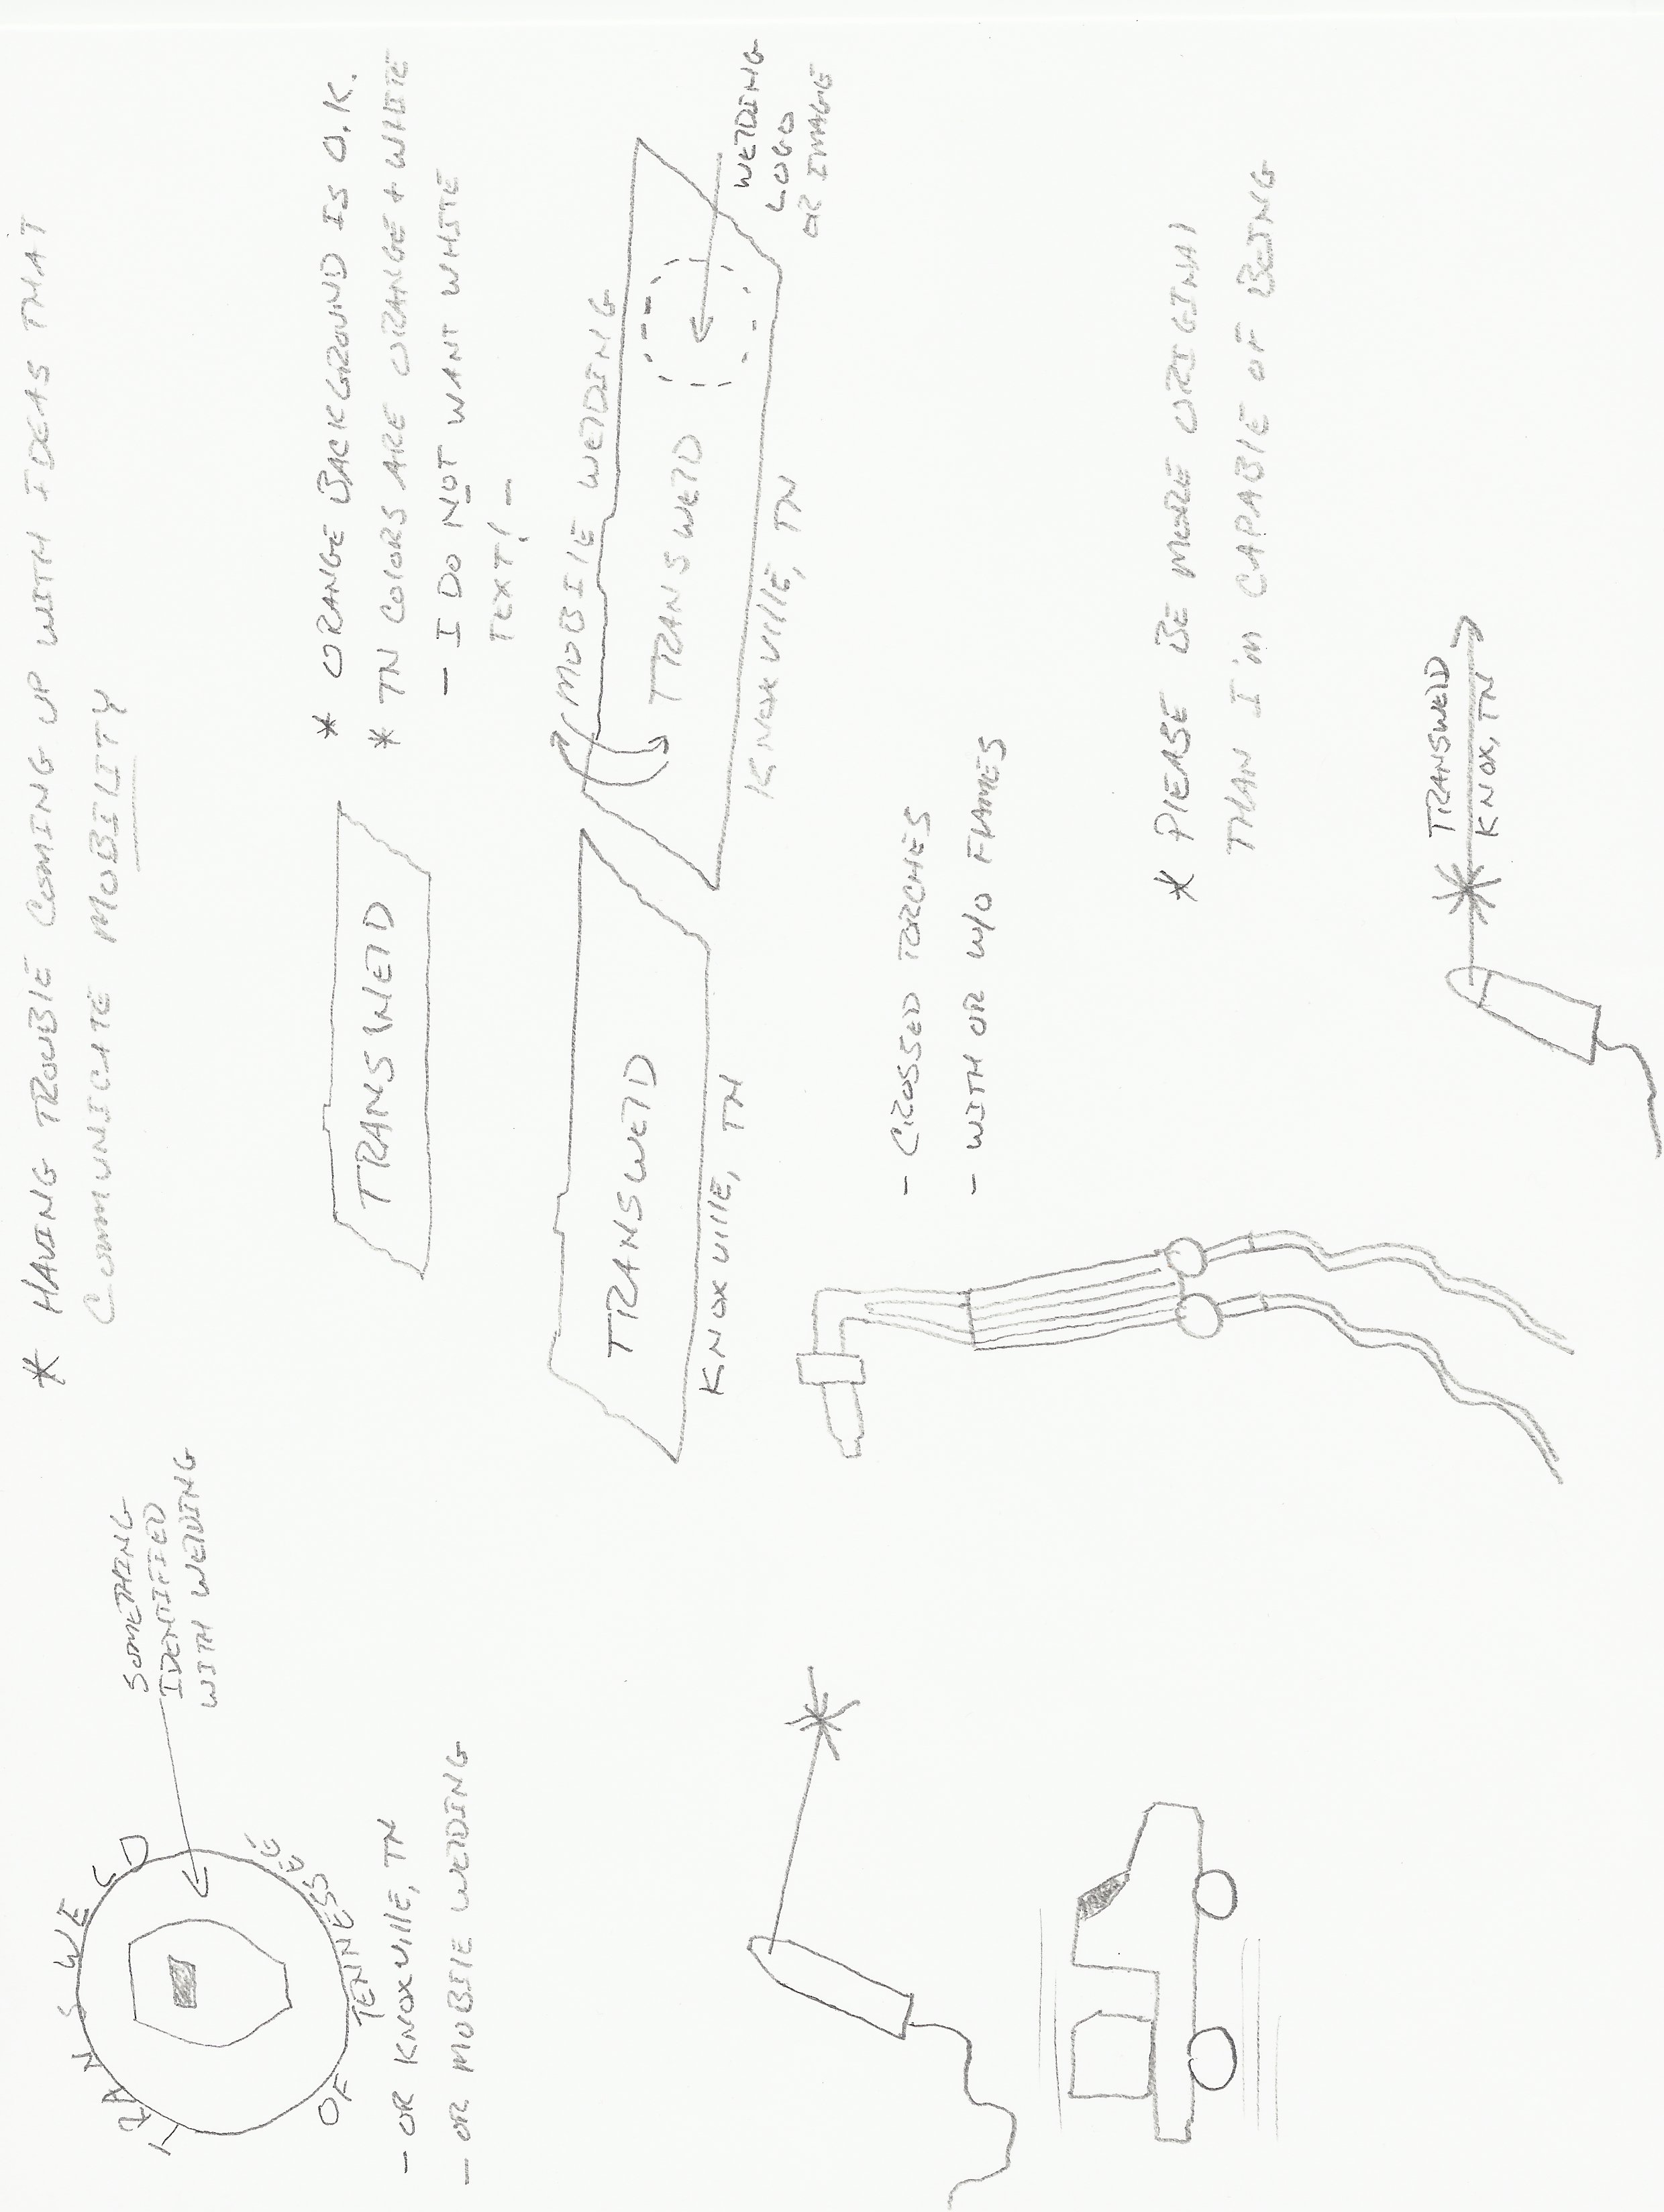 * HAVING TROUBLE COMING UP WITH IDEAS THAT
COMMUNICATE MOBILITY
SOMETHING
IDENTIFIED
WITH WELDING
TRANSWELD
OF TENNESSEE
- OR KNOXVILLE, TN
- OR MOBILE WELDING
TRANSWELD
* ORANGE BACKGROUND IS O.K.
* TN COLORS ARE ORANGE + WHITE
- I DO NOT WANT WHITE
TEXT! -
TRANSWELD
KNOXVILLE, TN
MOBILE WELDING
TRANSWELD
KNOXVILLE, TN
WELDING
LOGO
OR IMAGE
- CROSSED TORCHES
- WITH OR W/O FLAMES
* PLEASE BE MORE ORIGINAL
THAN I'm CAPABLE OF BEING
TRANSWELD
KNOX, TN